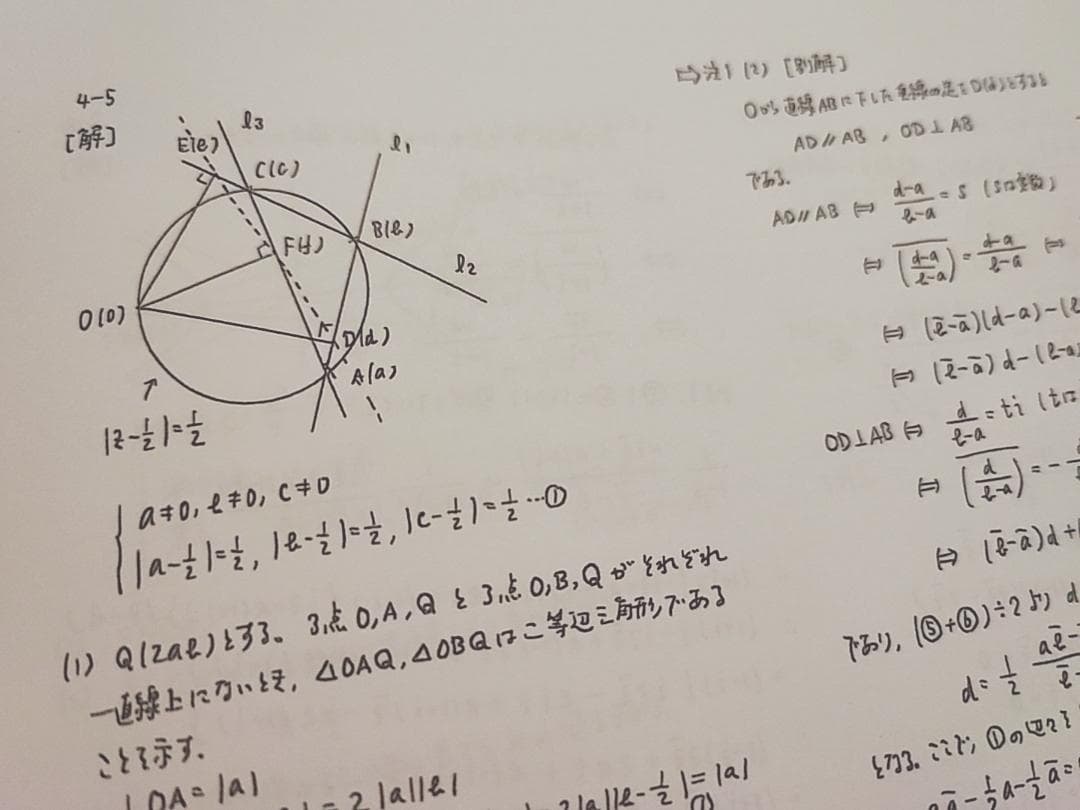 4-5
[解]
E(e)
l3
C(c)
l1
B(b)
F(f)
l2
O(0)
D(d)
A(a)
|z-1/2|=1/2
a≠0, b≠0, c≠0
|a-1/2|=1/2, |b-1/2|=1/2, |c-1/2|=1/2 …①
(1) Q(2ab)とする。3点O,A,Qと3点O,B,Qがそれぞれ
一直線上にないとき, △OAQ,△OBQは二等辺三角形である
ことを示す.
OA=|a|
=2|a||b|
2|a||b-1/2|=|a|
⇨注1 (2) [別解]
Oから直線ABに下した垂線の足をD(d)とすると
AD//AB, OD⊥AB
である.
AD//AB ⇔ (d-a)/(b-a)=s (sは実数)
⇔ \overline{((d-a)/(b-a))}=(d-a)/(b-a) ⇔
⇔ (b̄-ā)(d-a)-(b
⇔ (b̄-ā)d-(b-a
OD⊥AB ⇔ d/(b-a)=ti (tは
⇔ \overline{(d/(b-a))}=-
⇔ (b̄-ā)d+
であり, (⑤+⑥)÷2より d
d=1/2
となる. ここで, ①の辺々を